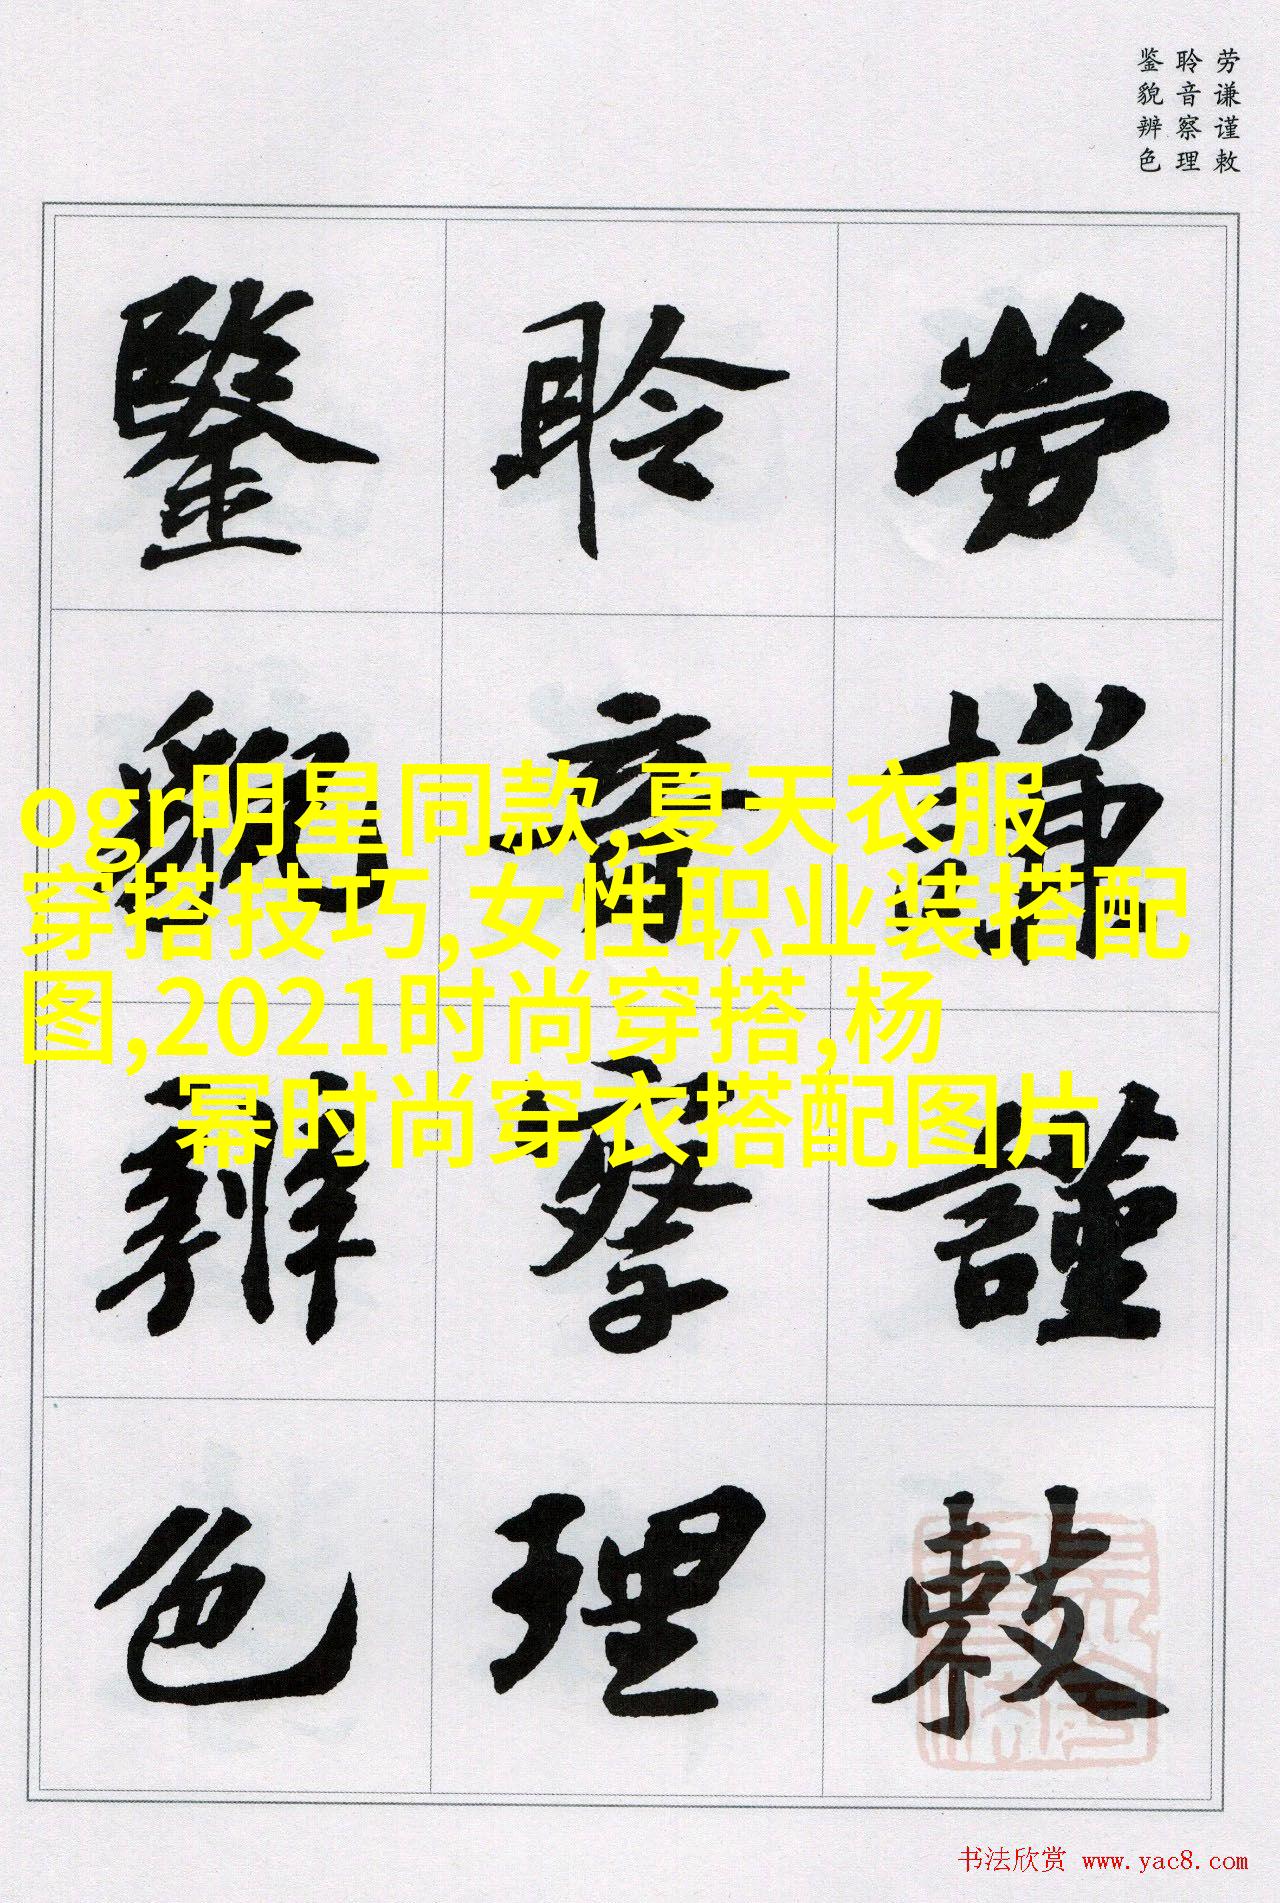 劳谦谨敕
聆音察理
鉴貌辨色
勞謙謹敕
聆音察理
鑒貌辨色
ogr明星同款,夏天衣服
穿搭技巧,女性职业装搭配
图,2021时尚穿搭,杨
幂时尚穿衣搭配图片
书法欣赏 www.yac8.com